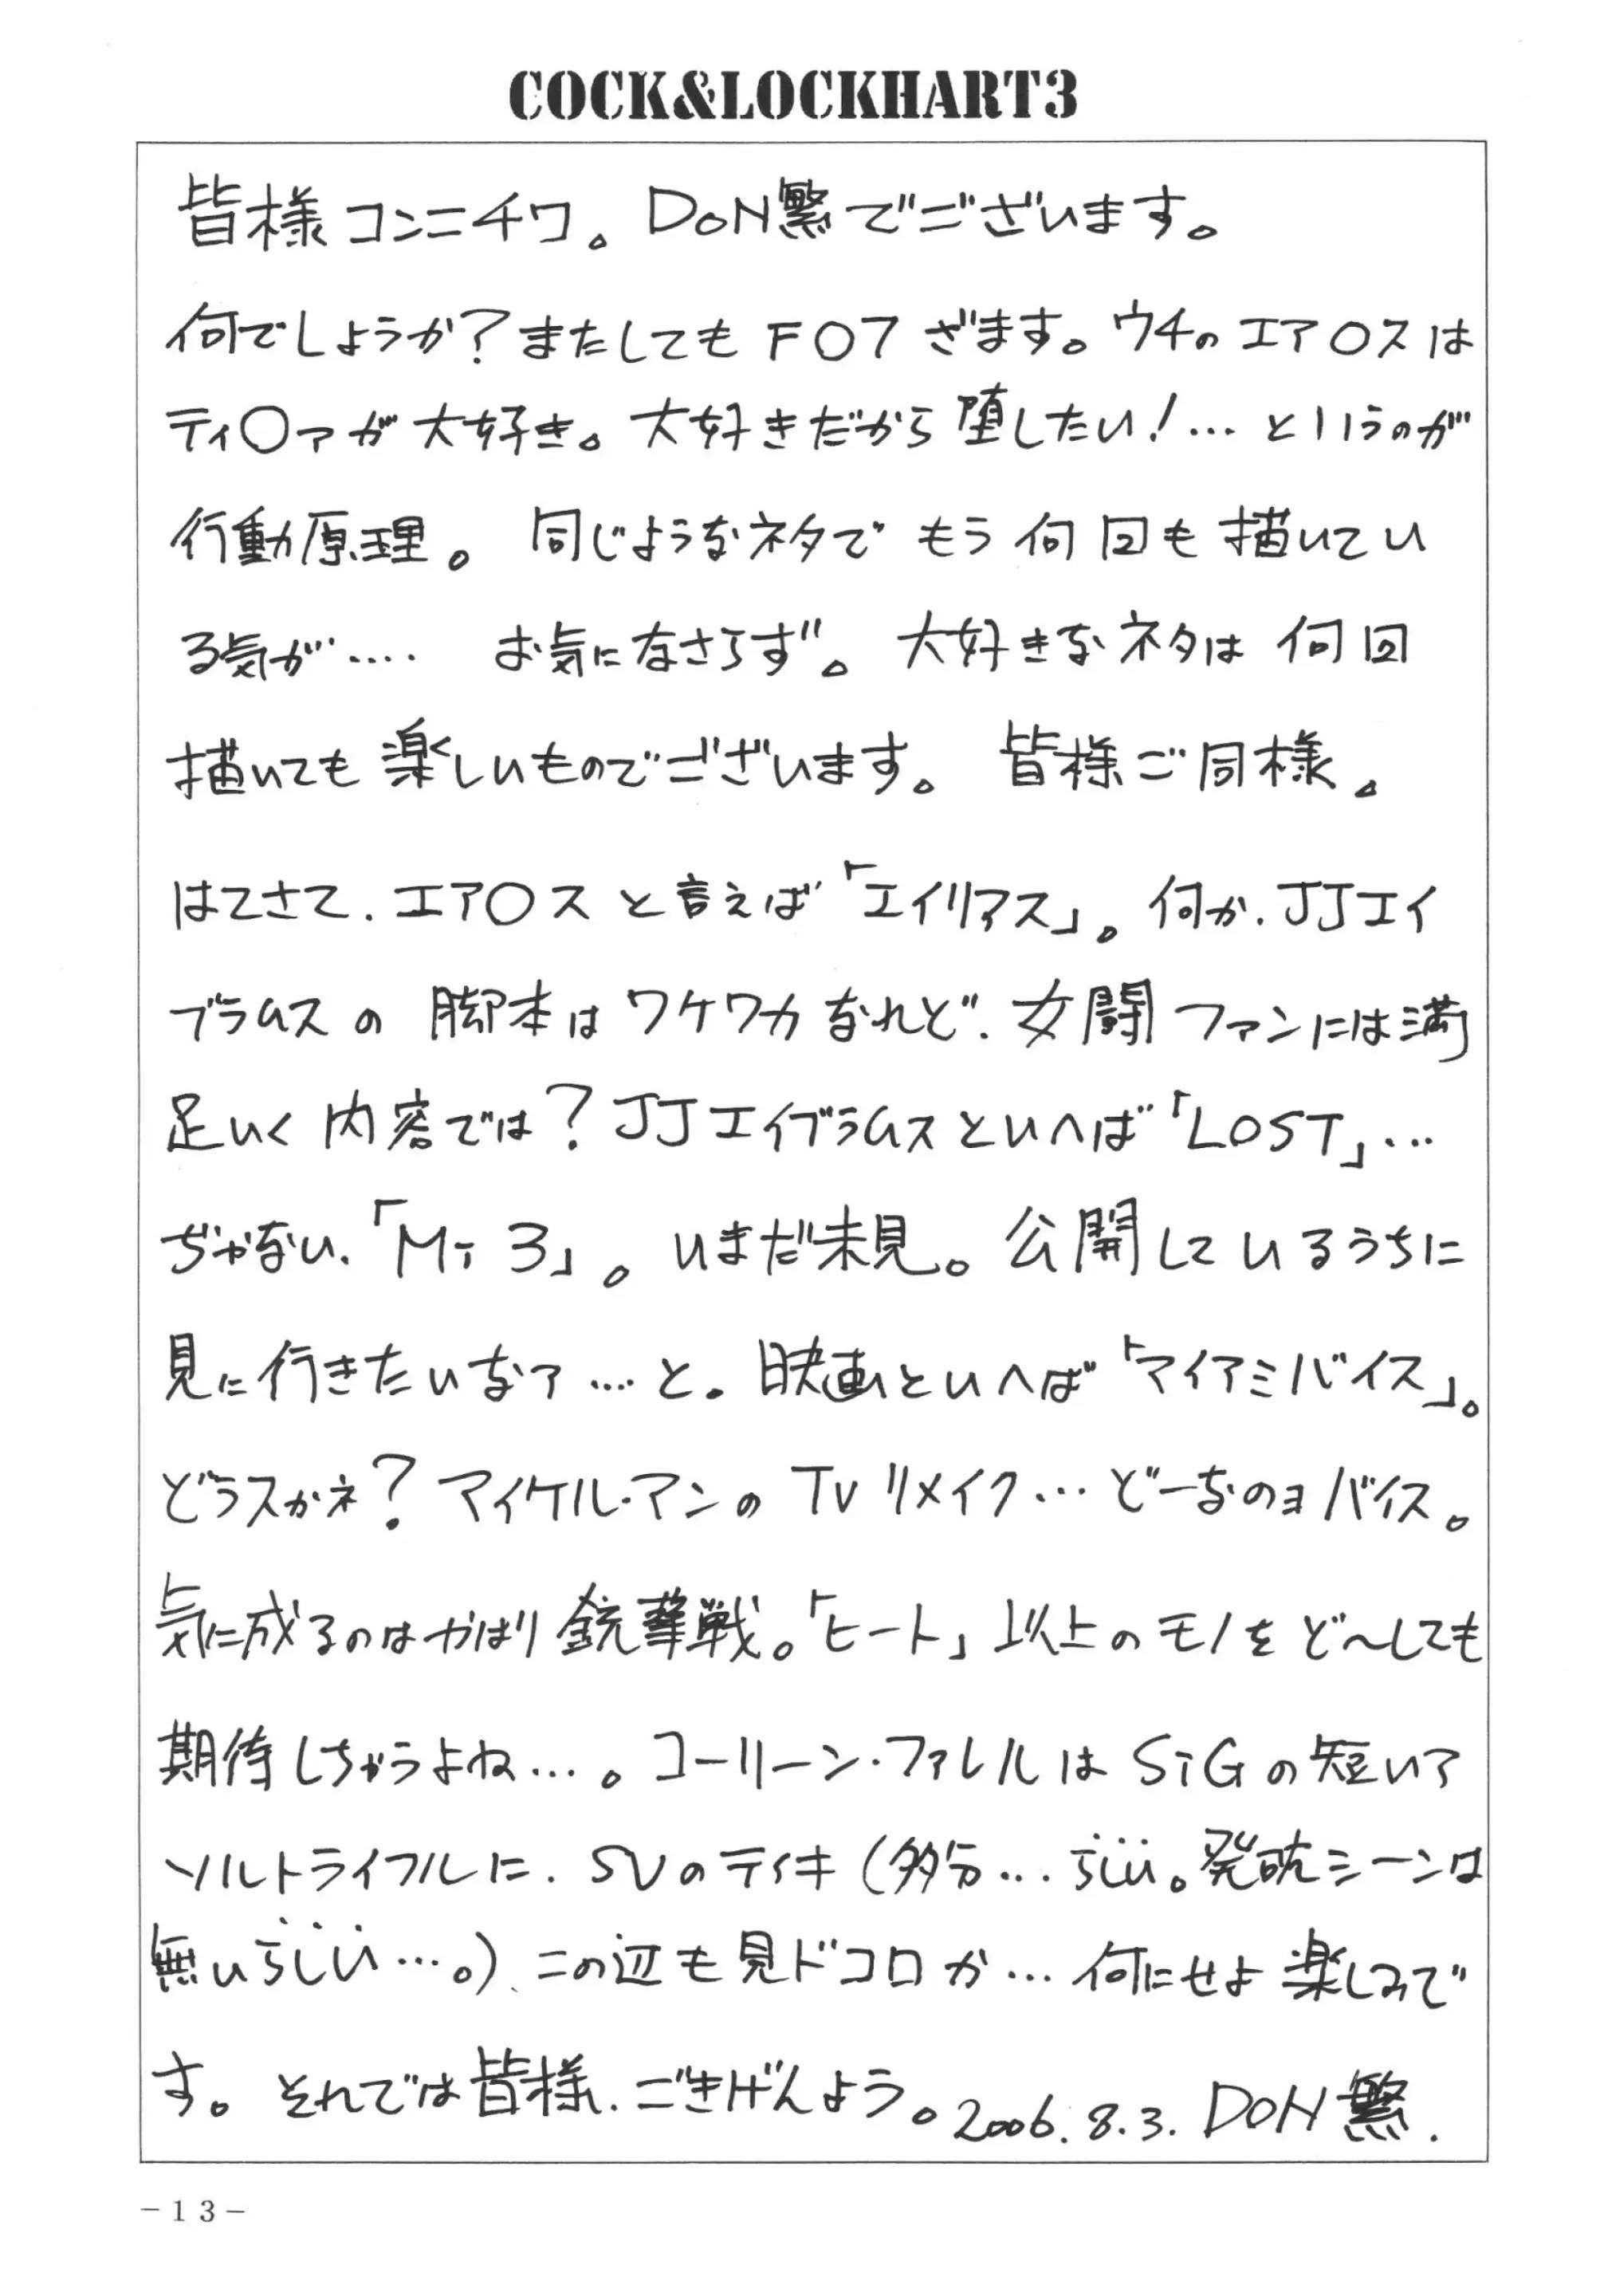 COCK&LOCKHART3
皆様コンニチワ。DoN繁でございます。
何でしょうか?またしてもF○7ざます。ウチのエア○スは
ティ○ァが大好き。大好きだから堕したい!…というのが
行動原理。同じようなネタでもう何回も描いてい
る気が‥‥ お気になさらず。大好きなネタは何回
描いても楽しいものでございます。皆様ご同様。
はてさて、エア○スと言えば「エイリアス」。何か、JJエイ
ブラムスの脚本はワケワカなれど、女闘ファンには満
足いく内容では?JJエイブラムスといへば「LOST」…
ぢゃない、「Mi3」。いまだ未見。公開しているうちに
見に行きたいなァ‥‥と。映画といへば「マイアミバイス」。
どうスかネ?マイケル・マンのTVリメイク…どーなのョバイス。
気に成るのはやはり銃撃戦。「ヒート」以上のモノをど〜しても
期待しちゃうよね…。コーリーン・ファレルはSiGの短いア
ソルトライフルに、SVのティキ(多分…らしい。発砲シーンは
無いらしい…。)、この辺も見ドコロか…何にせよ楽しみで
す。それでは皆様、ごきげんよう。2006.8.3. DoN繁.
-13-